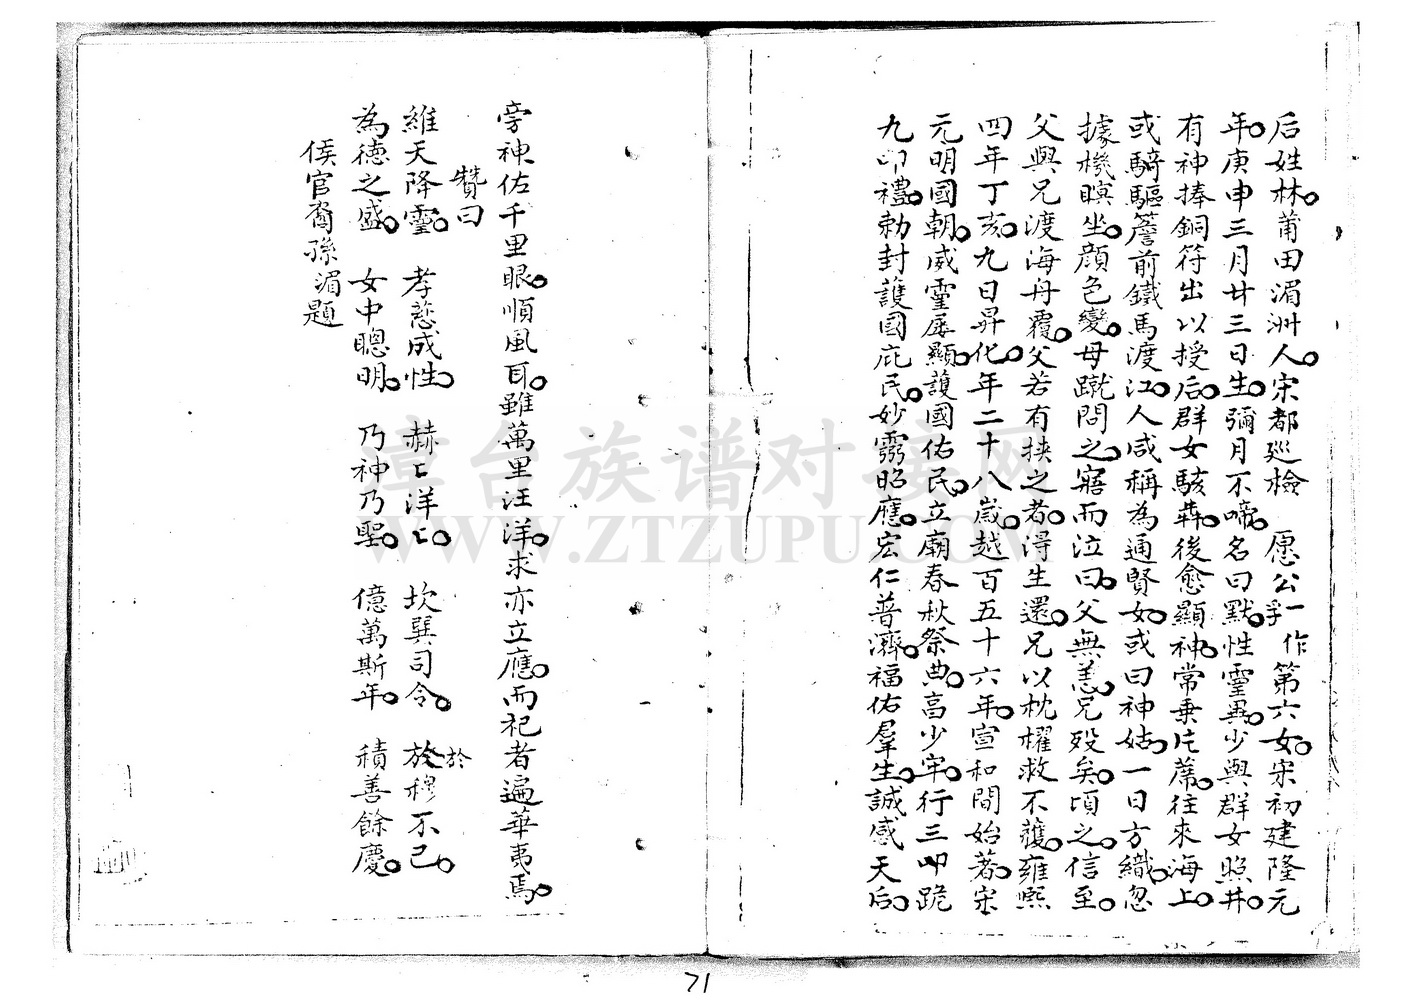 后姓林。莆田湄洲人。宋都巡檢 愿公一作孚第六女。宋初建隆元
年。庚申三月廿三日生。彌月不啼。名曰默。性靈異。少與群女照井。
有神捧銅符出以授后。群女駭犇。後愈顯神。常乗片蓆。往來海上。
或騎驅簷前鐵馬渡江。人咸稱為通賢女。或曰神姑。一日方織。忽
據機瞑坐。顔色變。母蹴問之。寤而泣曰。父無恙。兄殁矣。頃之。信至。
父與兄渡海舟覆。父若有挟之者。得生還。兄以柁櫂救不蕿。雍熙
四年丁亥。九日昇化。年二十八歲。越百五十六年。宣和間始著。宋
元明國朝。威靈屢顯。護國佑民。立廟春秋祭典。髙少牢。行三叩跪
九叩禮。勅封護國庇民。妙靈昭應。宏仁普濟。福佑羣生。誠感天后。
旁神佐千里眼。順風耳。雖萬里汪洋。求亦立應。而祀者遍華夷焉。
贊曰
維天降靈。 孝慈成性。 赫〻洋〻。 坎巽司令。 於穆不已。
於
為德之盛。 女中聰明。 乃神乃聖。 億萬斯年。 積善餘慶。
侯官裔孫湄題
漳台族谱对接网
WWW.ZTZUPU.COM
71